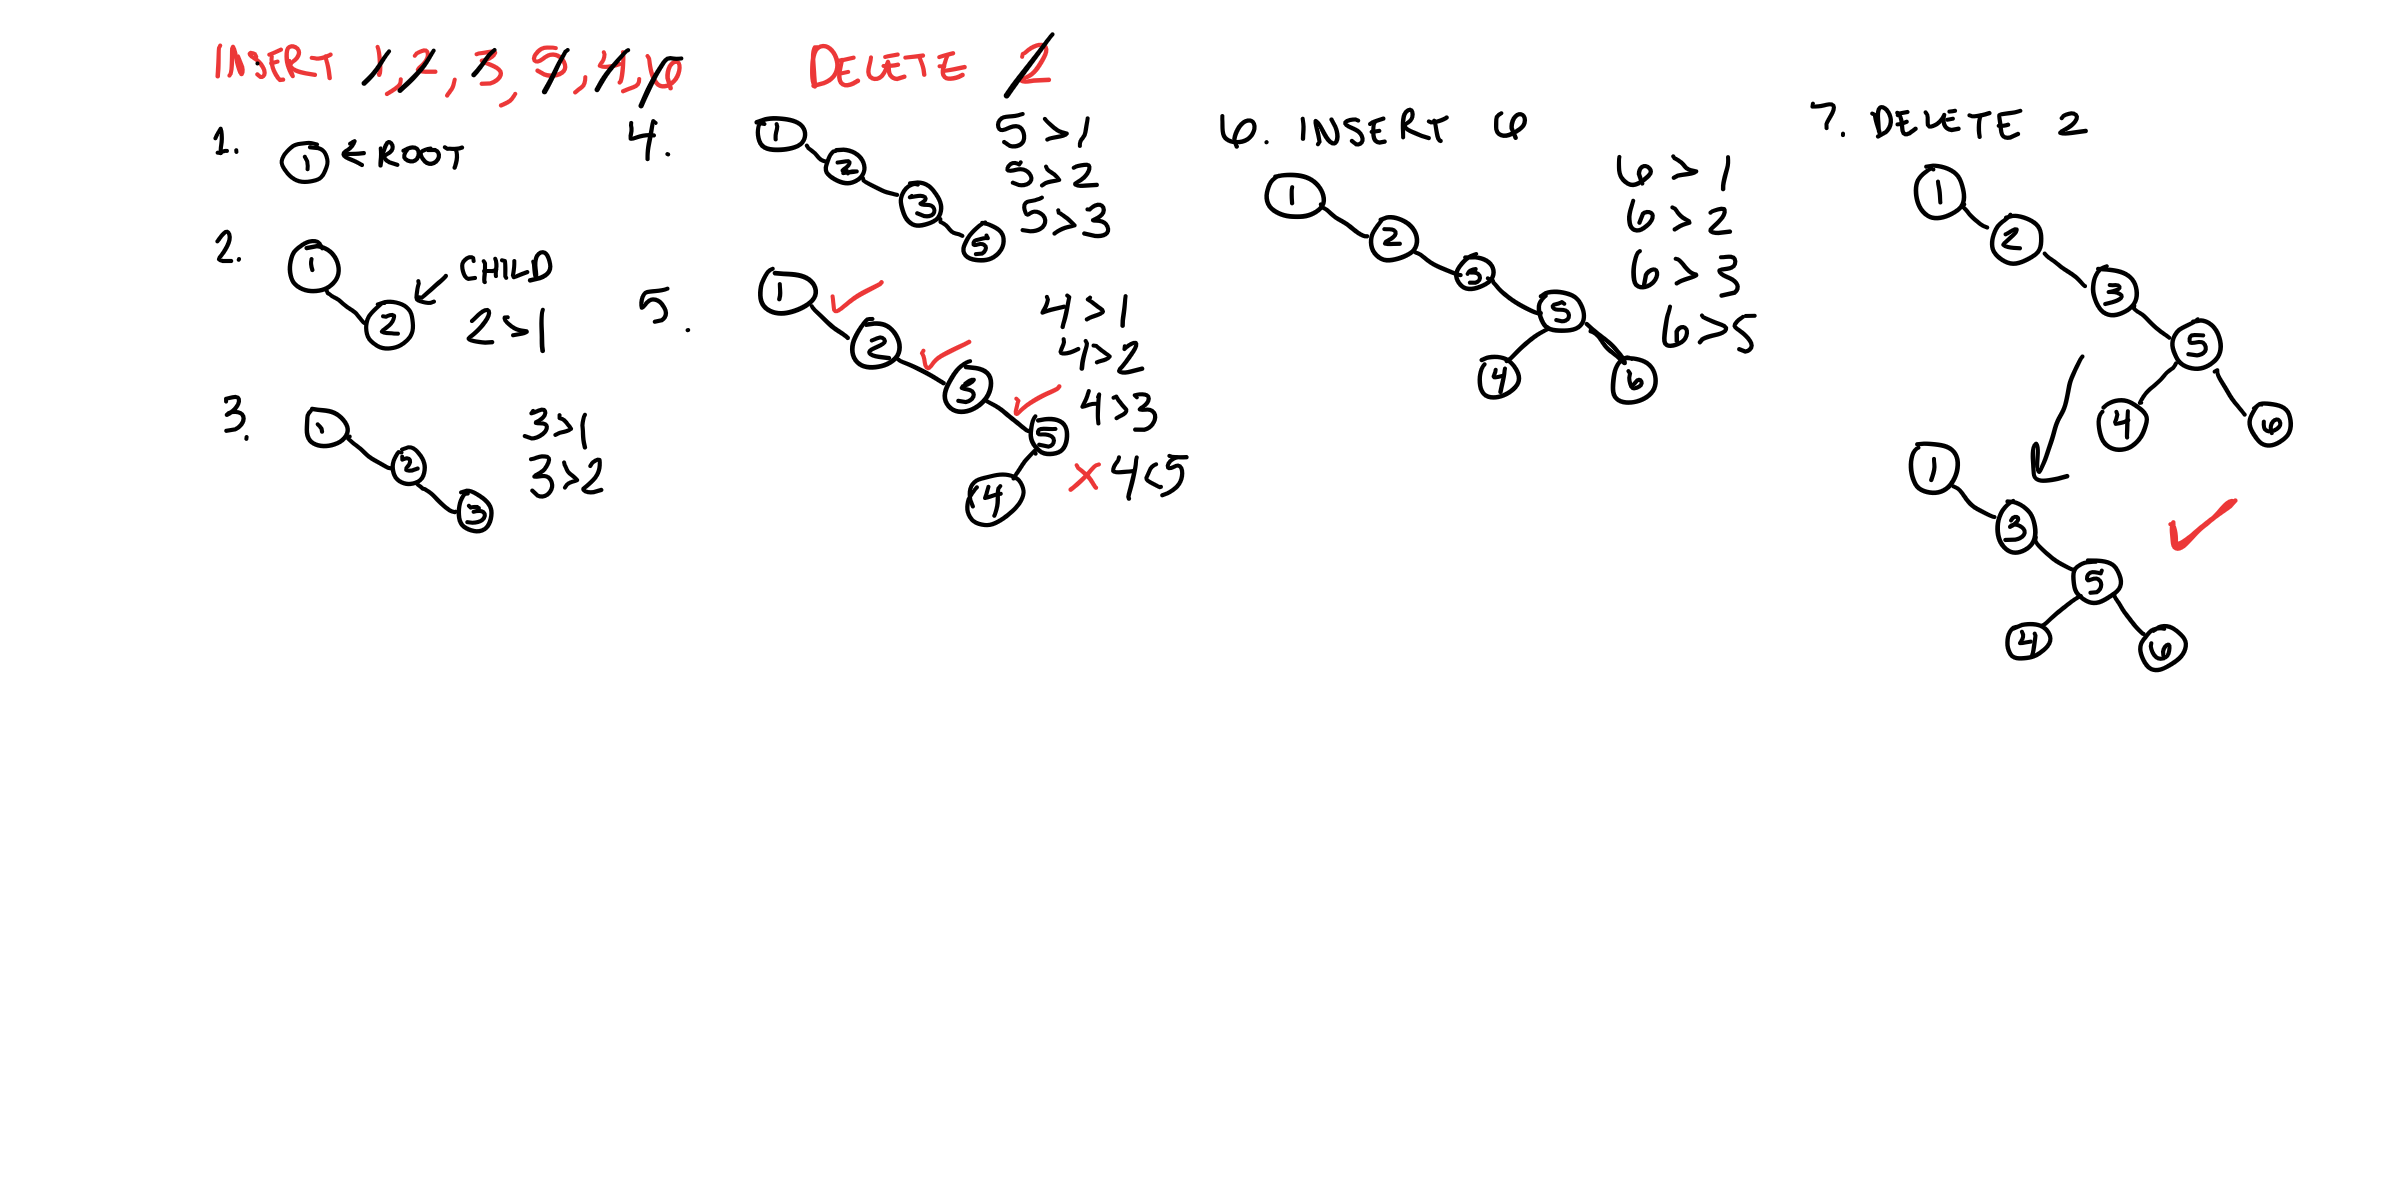 INSERT 1, 2, 3, 5, 4, 6
DELETE 2
1.
1 ← ROOT
2.
1
CHILD
2
2>1
3.
1
2
3
3>1
3>2
4.
1
2
3
5
5>1
5>2
5>3
5.
1
2
3
5
4
4>1
4>2
4>3
4<5
6. INSERT 6
1
2
3
5
4
6
6>1
6>2
6>3
6>5
7. DELETE 2
1
2
3
5
4
6
1
3
5
4
6